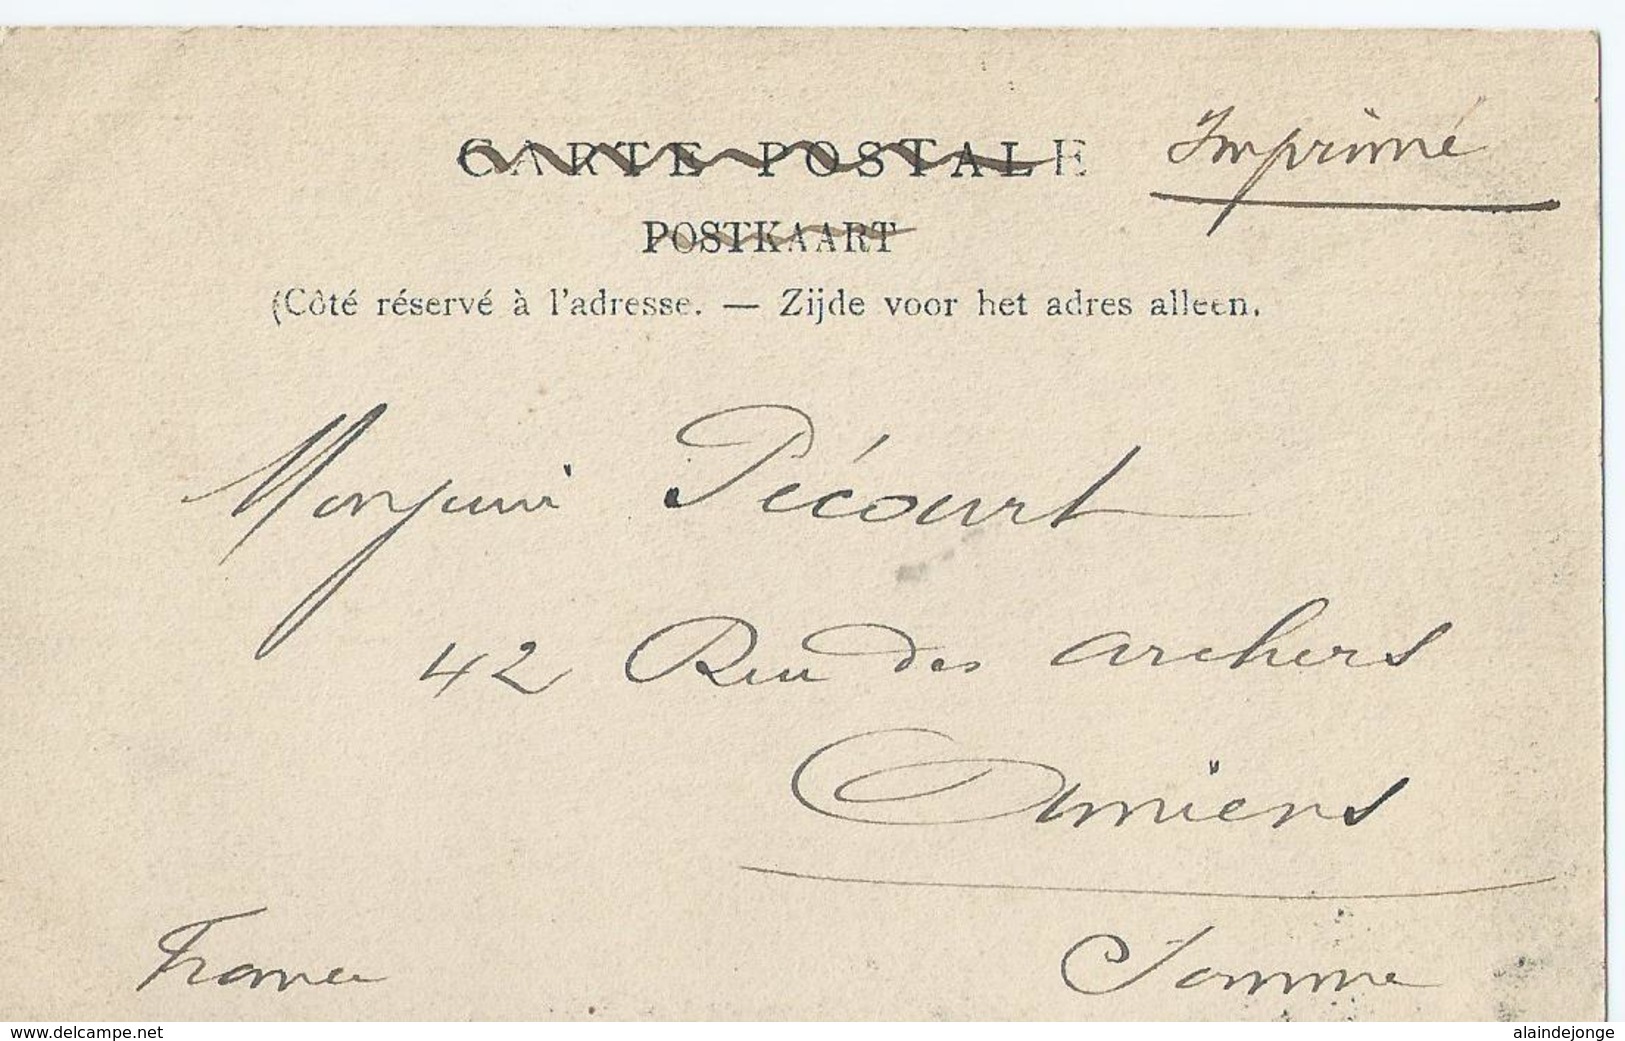 CARTE POSTALE Imprimé
POSTKAART
(Côté réservé à l'adresse. — Zijde voor het adres alleen.
Monsieur Pécourt
42 Rue des archers
Amiens
France Somme
www.delcampe.net alaindejonge